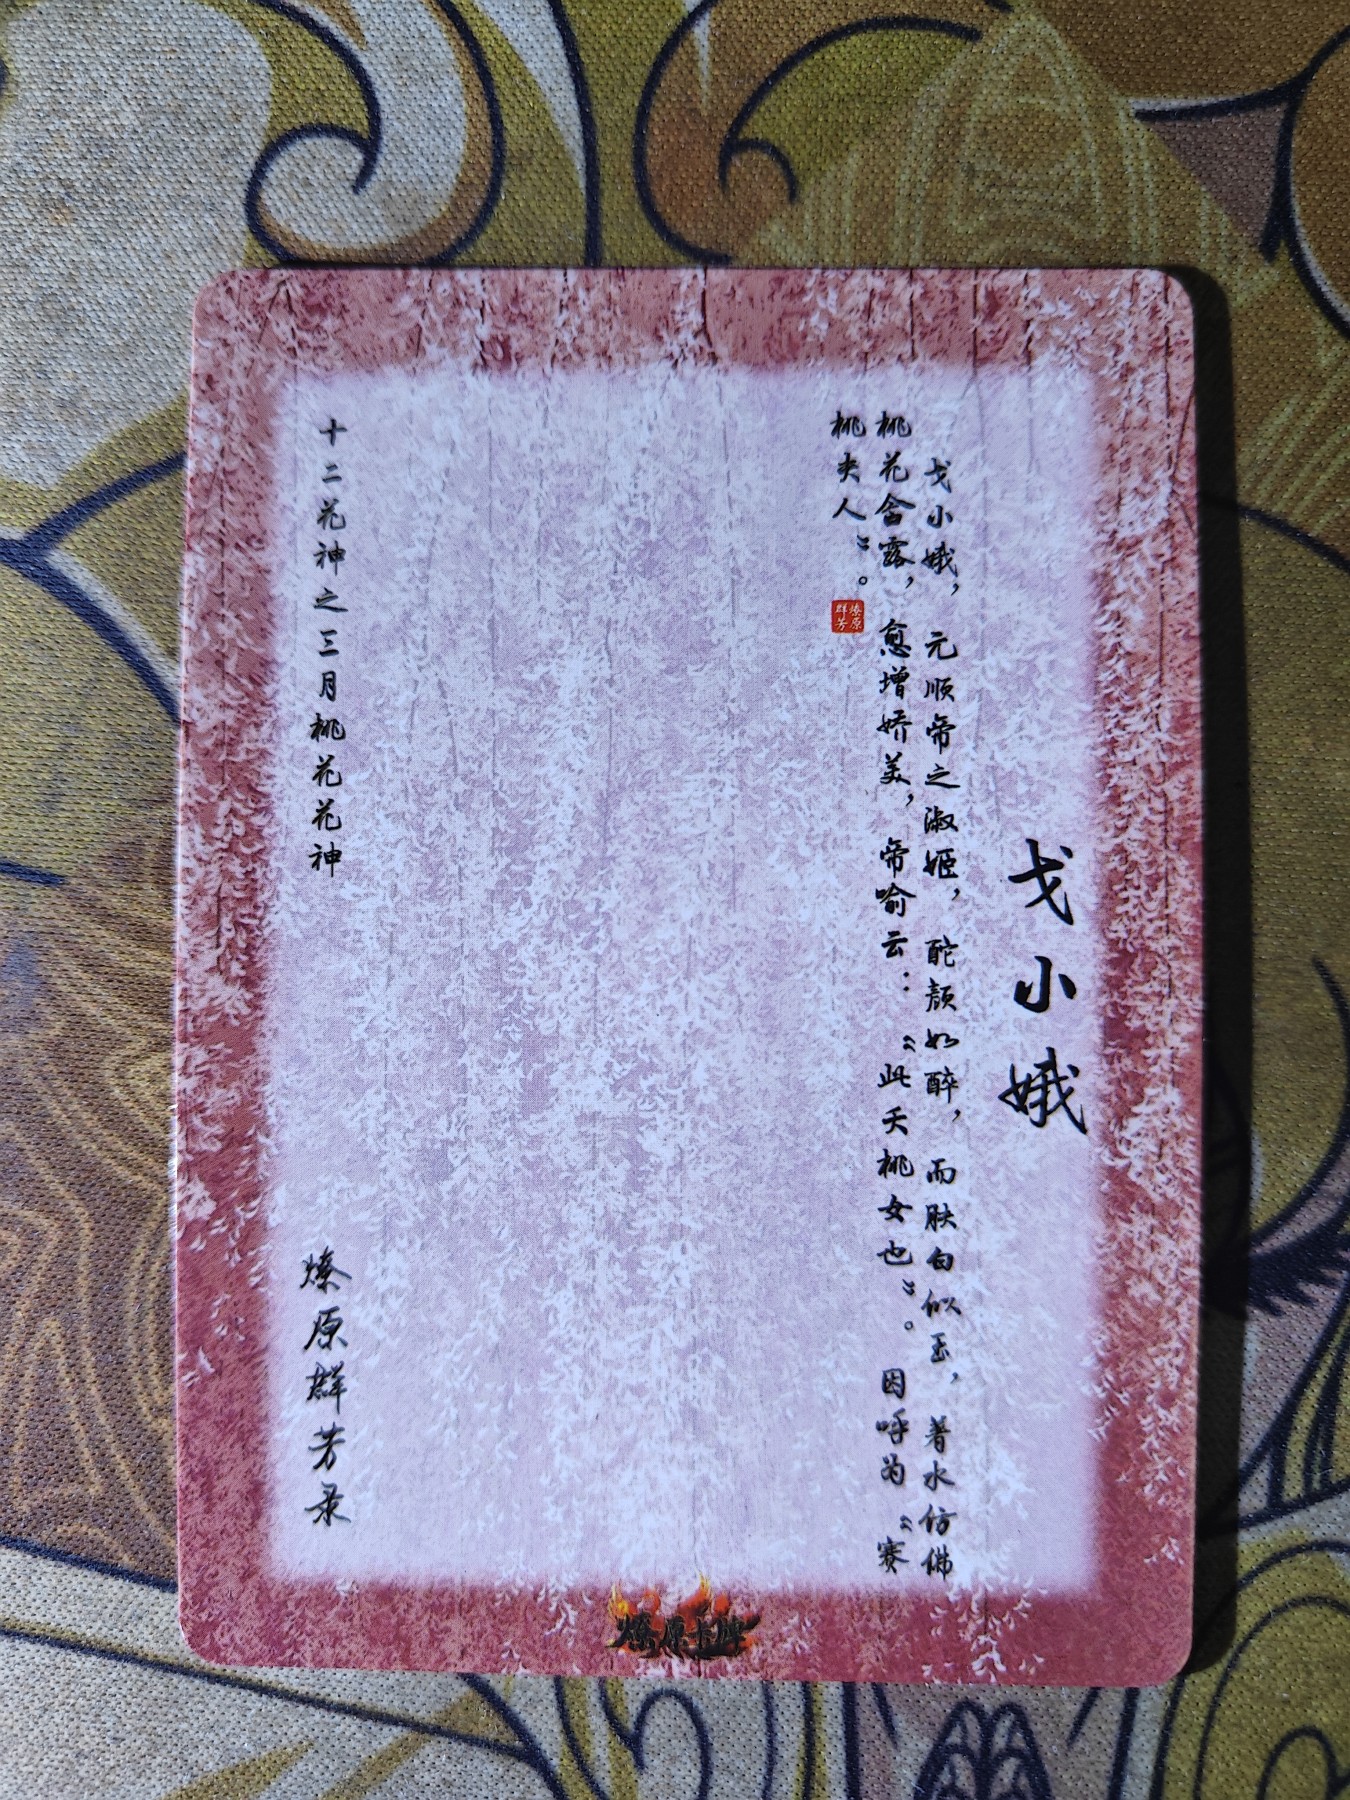 戈小娥
戈小娥，元顺帝之淑姬，酡颜如醉，而肤白似玉，著水仿佛
桃花含露，愈增娇美，帝喻云：“此夭桃女也”。因呼为“赛
桃夫人”。
燎原群芳
十二花神之三月桃花花神
燎原群芳录
燎原卡牌